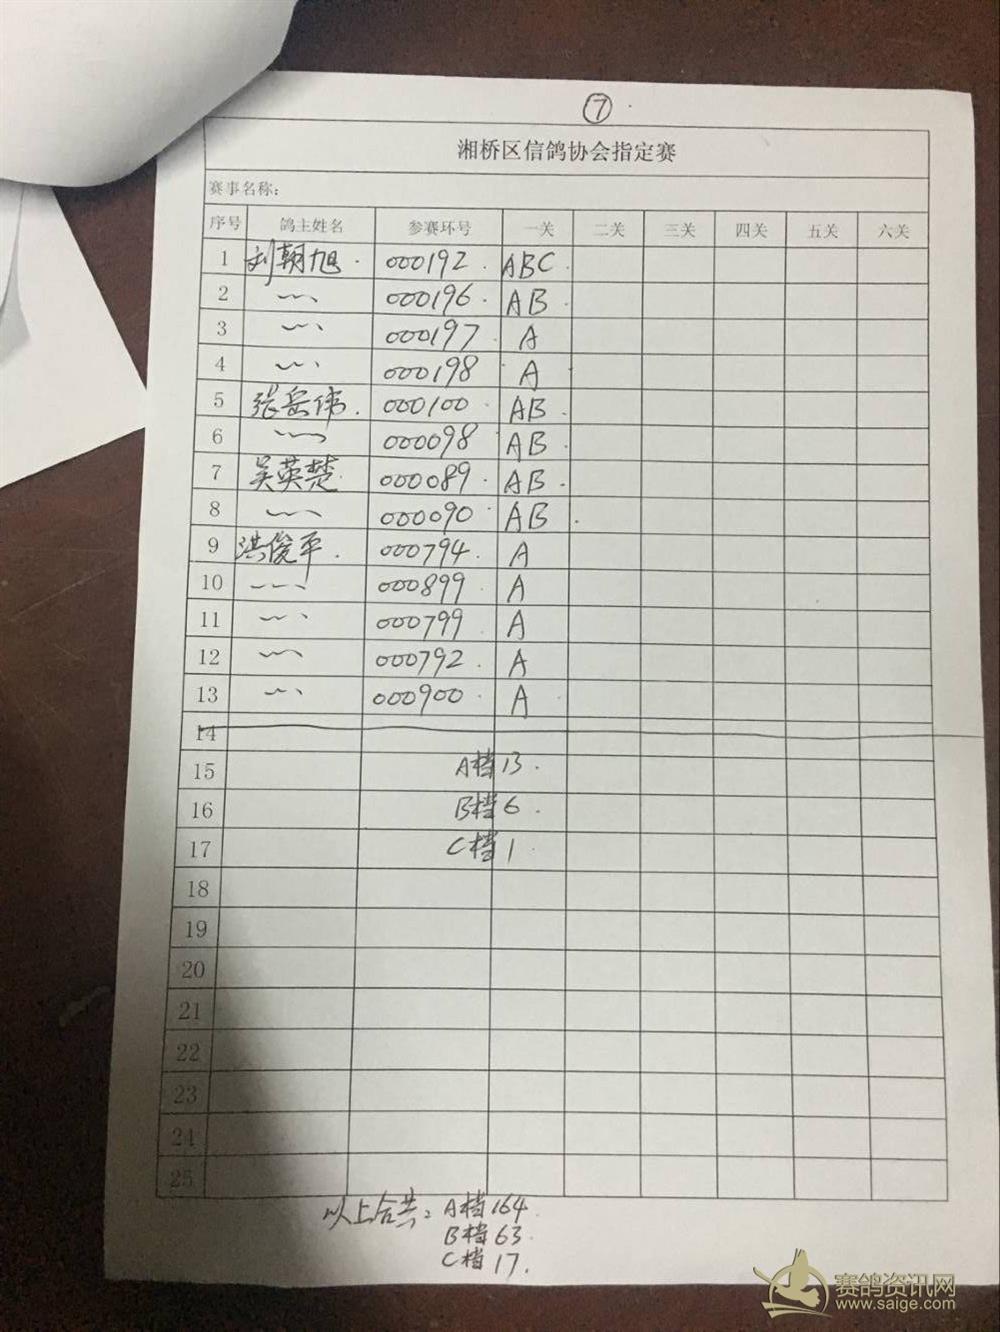 ⑦
湘桥区信鸽协会指定赛
赛事名称:
序号 鸽主姓名 参赛环号 一关 二关 三关 四关 五关 六关
1 刘朝旭 000192 ABC
2 000196 AB
3 000197 A
4 000198 A
5 张岳伟 000100 AB
6 000098 AB
7 吴英楚 000089 AB
8 000090 AB
9 洪俊平 000794 A
10 000899 A
11 000799 A
12 000792 A
13 000900 A
14
15 A档 13
16 B档 6
17 C档 1
18
19
20
21
22
23
24
25
以上合共: A档 164
B档 63
C档 17
赛鸽资讯网
www.saige.com